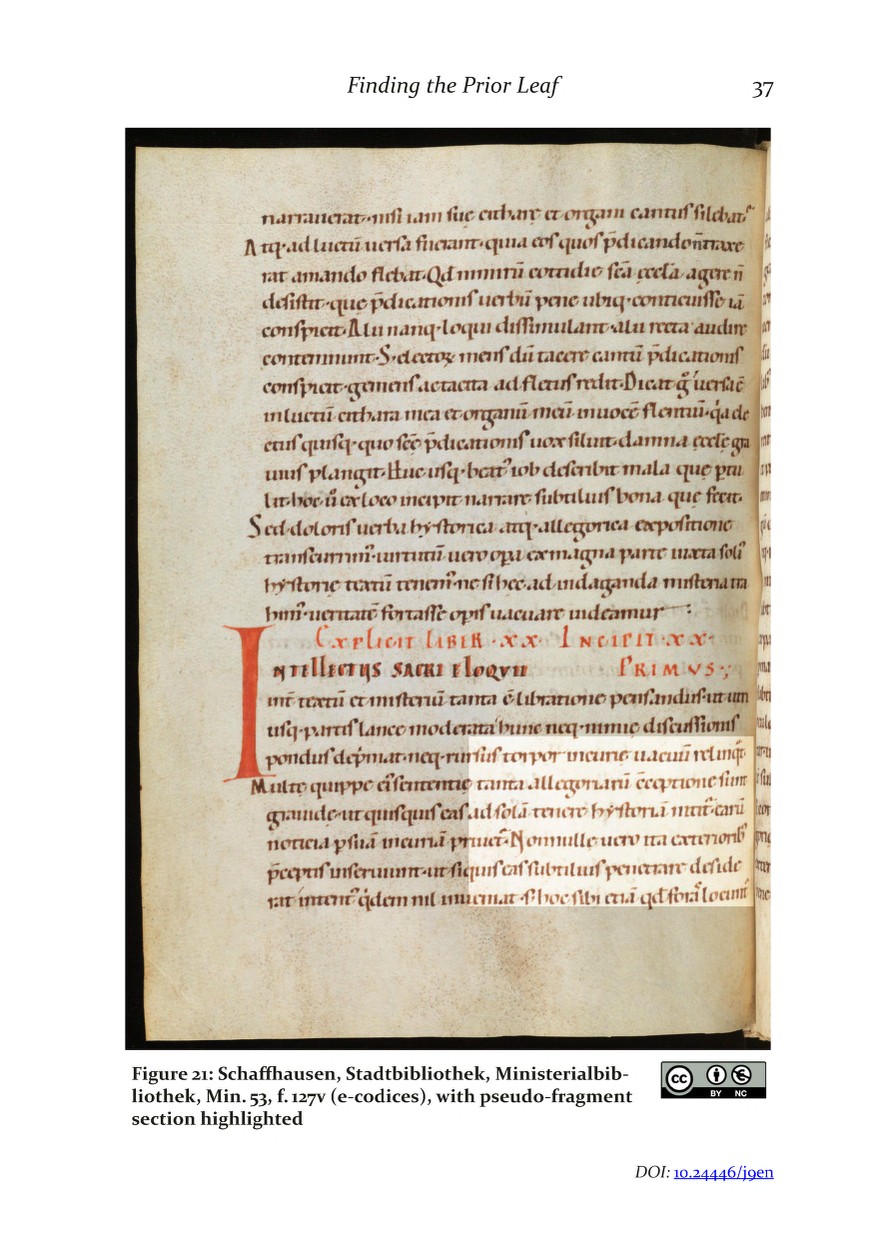 Finding the Prior Leaf 37
narrauerat· nisi iam suę citharę et organi cantus silebat᷒
Atq· ad luctū uersa fuerant· quia eos quos p̄dicando n̄ traxe
rat amando flebat· Qđ nimirū cottidie sc̄a ęccl̄a agere n̄
desistit· que p̄dicationis uerbū pene ubiq· conticuisse iā
conspicit· Alii nanq· loqui dissimulant· alii recta audire
contemnunt· S· electoꝝ mens dū tacere cantū p̄dicationis
conspicit· gemens ac tacita ad fletus redit· Dicat g̊ uersa ē
in luctū cithara mea et organū meū in uocē flentiū· q̇a de
etus quisq· quo sc̄ę p̄dicationis uox siluit· damna ęccl̄ę gra
uius plangit· Huc usq· beat᷒ iob describit mala quę ptu
lit· hoc ū ex loco incipit narrare subtilius bona quę fecit·
Sed doloris uerba hẏstorica atq· allegorica expositione
transcurrim᷒· uirtutū uero opa ex magna parte iuxta soli᷒
hẏstorię textū tenem᷒· ne si hęc ad indaganda misteria tra
him᷒· ueritatē fortasse opis uacuare uideamur
EXPLICIT LIBER · XX· INCIPIT · XX·
INTELLECTUS SACRI ELOQVII PRIMVS·
int̄ textū et misteriū tanta ē libratione pensandus· ut utri
usq· partis lance moderata hunc neq· nimię discussionis
pondus dep̄mat· neq· rursus torpor incurię uacuū relinq̄t·
Multę quippe ei᷒ sententię tanta allegoriarū c̄ceptione sunt
grauidę· ut quisquis eas ad solā tenere hẏstoriā nitit᷒· earū
noticia p suā incuriā priuet᷒· Nonnullę uero ita exteriorib᷒
p̄ceptis inseruiunt· ut si quis eas subtilius penetrare deside
rat· intent᷒ q̇dem nil inueniat· s· hoc sibi etiā qđ foras locunt᷒
Figure 21: Schaffhausen, Stadtbibliothek, Ministerialbib-
liothek, Min. 53, f. 127v (e-codices), with pseudo-fragment
section highlighted
CC BY NC
DOI: 10.24446/j9en